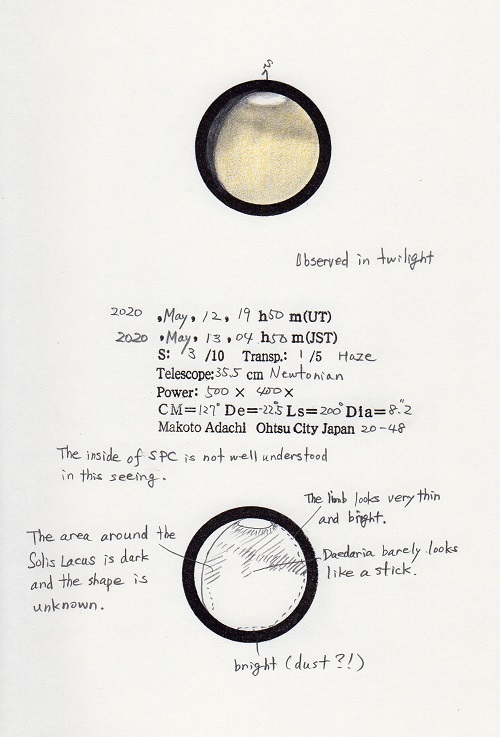 S
Observed in twilight
2020 , May , 12 , 19 h 50 m(UT)
2020 , May , 13 , 04 h 50 m(JST)
S: 3 /10 Transp.: 1 /5 Haze
Telescope: 35.5 cm Newtonian
Power: 500 × 400 ×
CM=127° De=-22°.5 Ls=200° Dia=8".2
Makoto Adachi Ohtsu City Japan 20-48
The inside of SPC is not well understood
in this seeing.
The limb looks very thin
and bright.
The area around the
Solis Lacus is dark
and the shape is
unknown.
Daedaria barely looks
like a stick.
bright (dust?!)